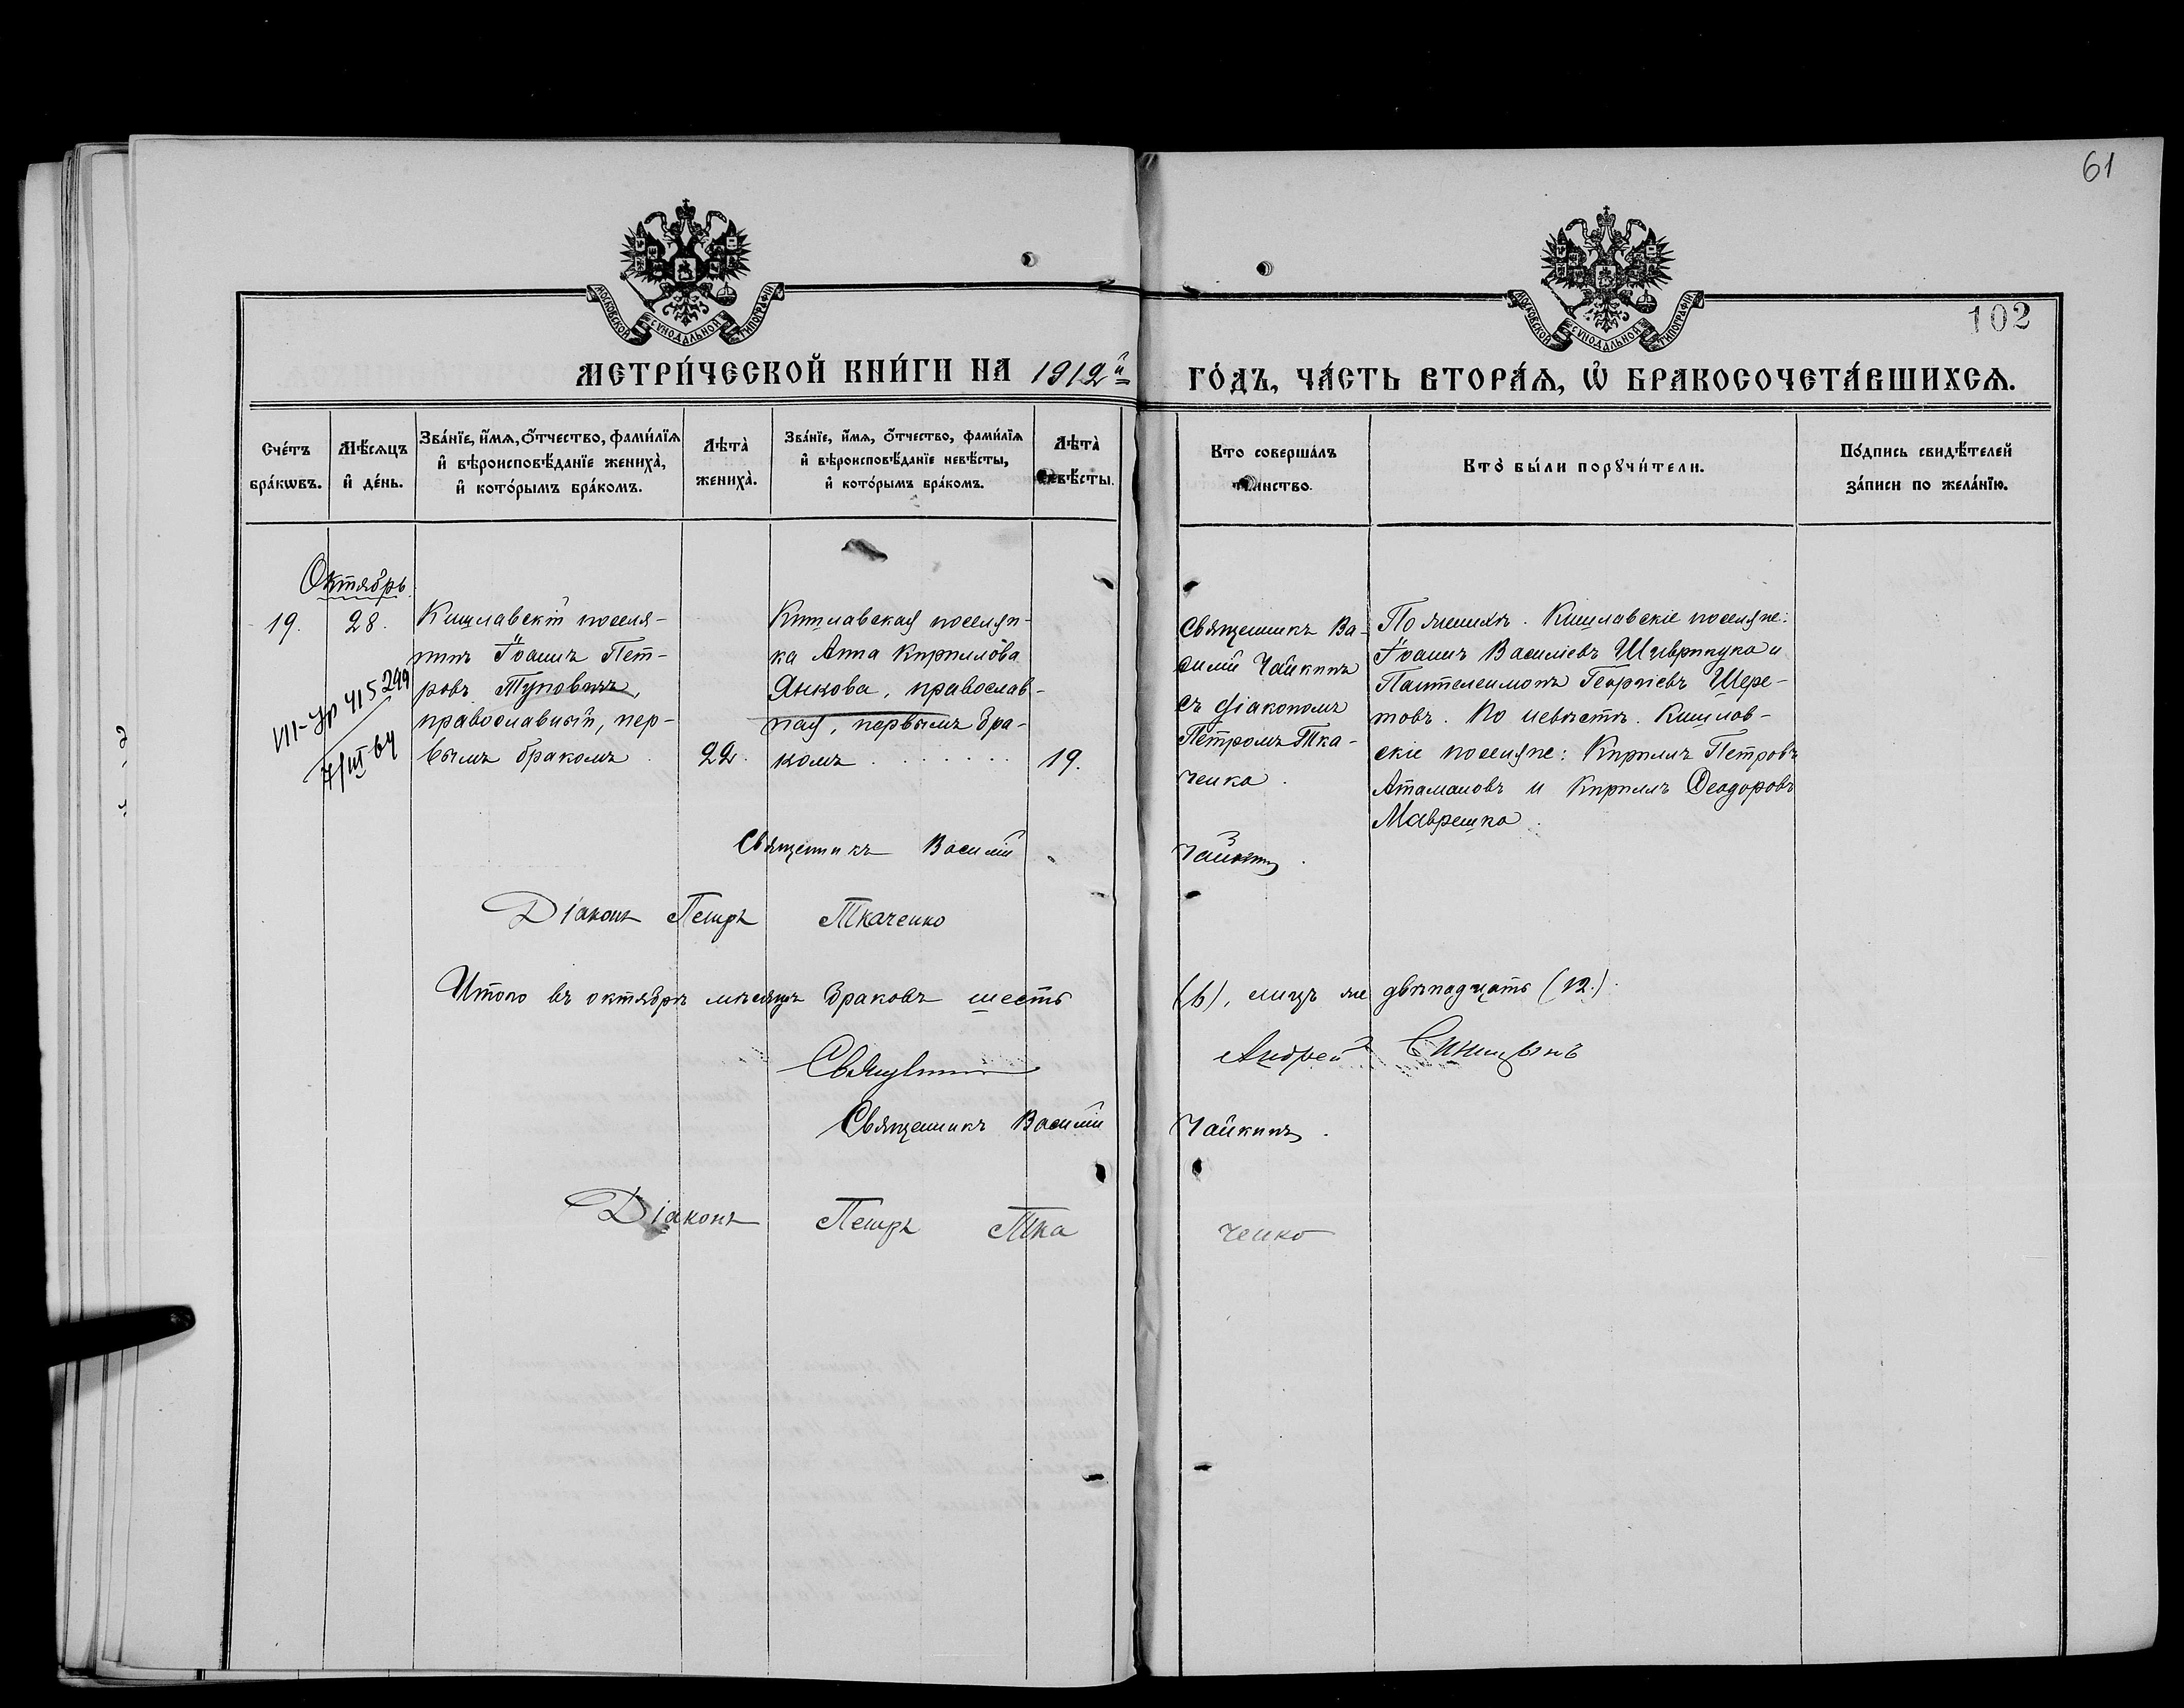 61
102
МОСКОВСКОЙ СѴНОДАЛЬНОЙ ТИПОГРАФІИ
МОСКОВСКОЙ СѴНОДАЛЬНОЙ ТИПОГРАФІИ
МЕТРИ́ЧЕСКОЙ КНИ́ГИ НА 1912й ГО́ДЪ, ЧА́СТЬ ВТОРА́Я, Ѽ БРАКОСОЧЕТА́ВШИХСЯ.
Сче́тъ бра́кѡвъ.
Мѣ́сяцъ и҆ де́нь.
Зва́нїе, и҆́мя, ѻ҆́тчество, фами́лїя
и҆ вѣроисповѣ́данїе жениха̀,
и҆ кото́рымъ бра́комъ.
Лѣта̀ жениха̀.
Зва́нїе, и҆́мя, ѻ҆́тчество, фами́лїя
и҆ вѣроисповѣ́данїе невѣ́сты,
и҆ кото́рымъ бра́комъ.
Лѣта̀ невѣ́сты.
Кто соверша́лъ таинство.
Кто̀ бы́ли порꙋчи́тели.
По́дпись свидѣ́телей
за́писи по жела́нїю.
Октябрь
19.
28.
VII-ЗР 415249
7/III 64
Кишлавскій поселя-
нинъ Іоаннъ Пет-
ровъ Туповъ,
православный, пер-
вымъ бракомъ
22.
Кишлавская поселян-
ка Анна Кириллова
Янкова, православ-
ная, первымъ бра-
комъ
19.
Священникъ Ва-
силій Чайкинъ
съ діакономъ
Петромъ Тка-
ченко.
По женихѣ. Кишлавскіе поселяне:
Іоаннъ Василіевъ Шиврикука и
Пантелеимонъ Георгіевъ Шере-
товъ. По невѣстѣ. Кишлав-
скіе поселяне: Кириллъ Петровъ
Атамановъ и Кириллъ Ѳеодоровъ
Маврешко.
Священникъ Василій Чайкинъ.
Діаконъ Петръ Ткаченко
Итого въ октябрѣ мѣсяцѣ браковъ шесть (6), лицъ же двѣнадцать (12).
Священникъ Андрей Синицынъ
Священникъ Василій Чайкинъ.
Діаконъ Петръ Ткаченко